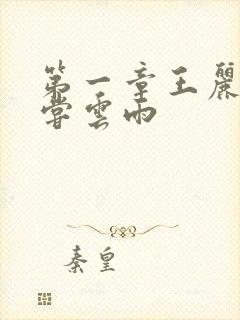 第一章王麗
嘗雲雨
秦皇